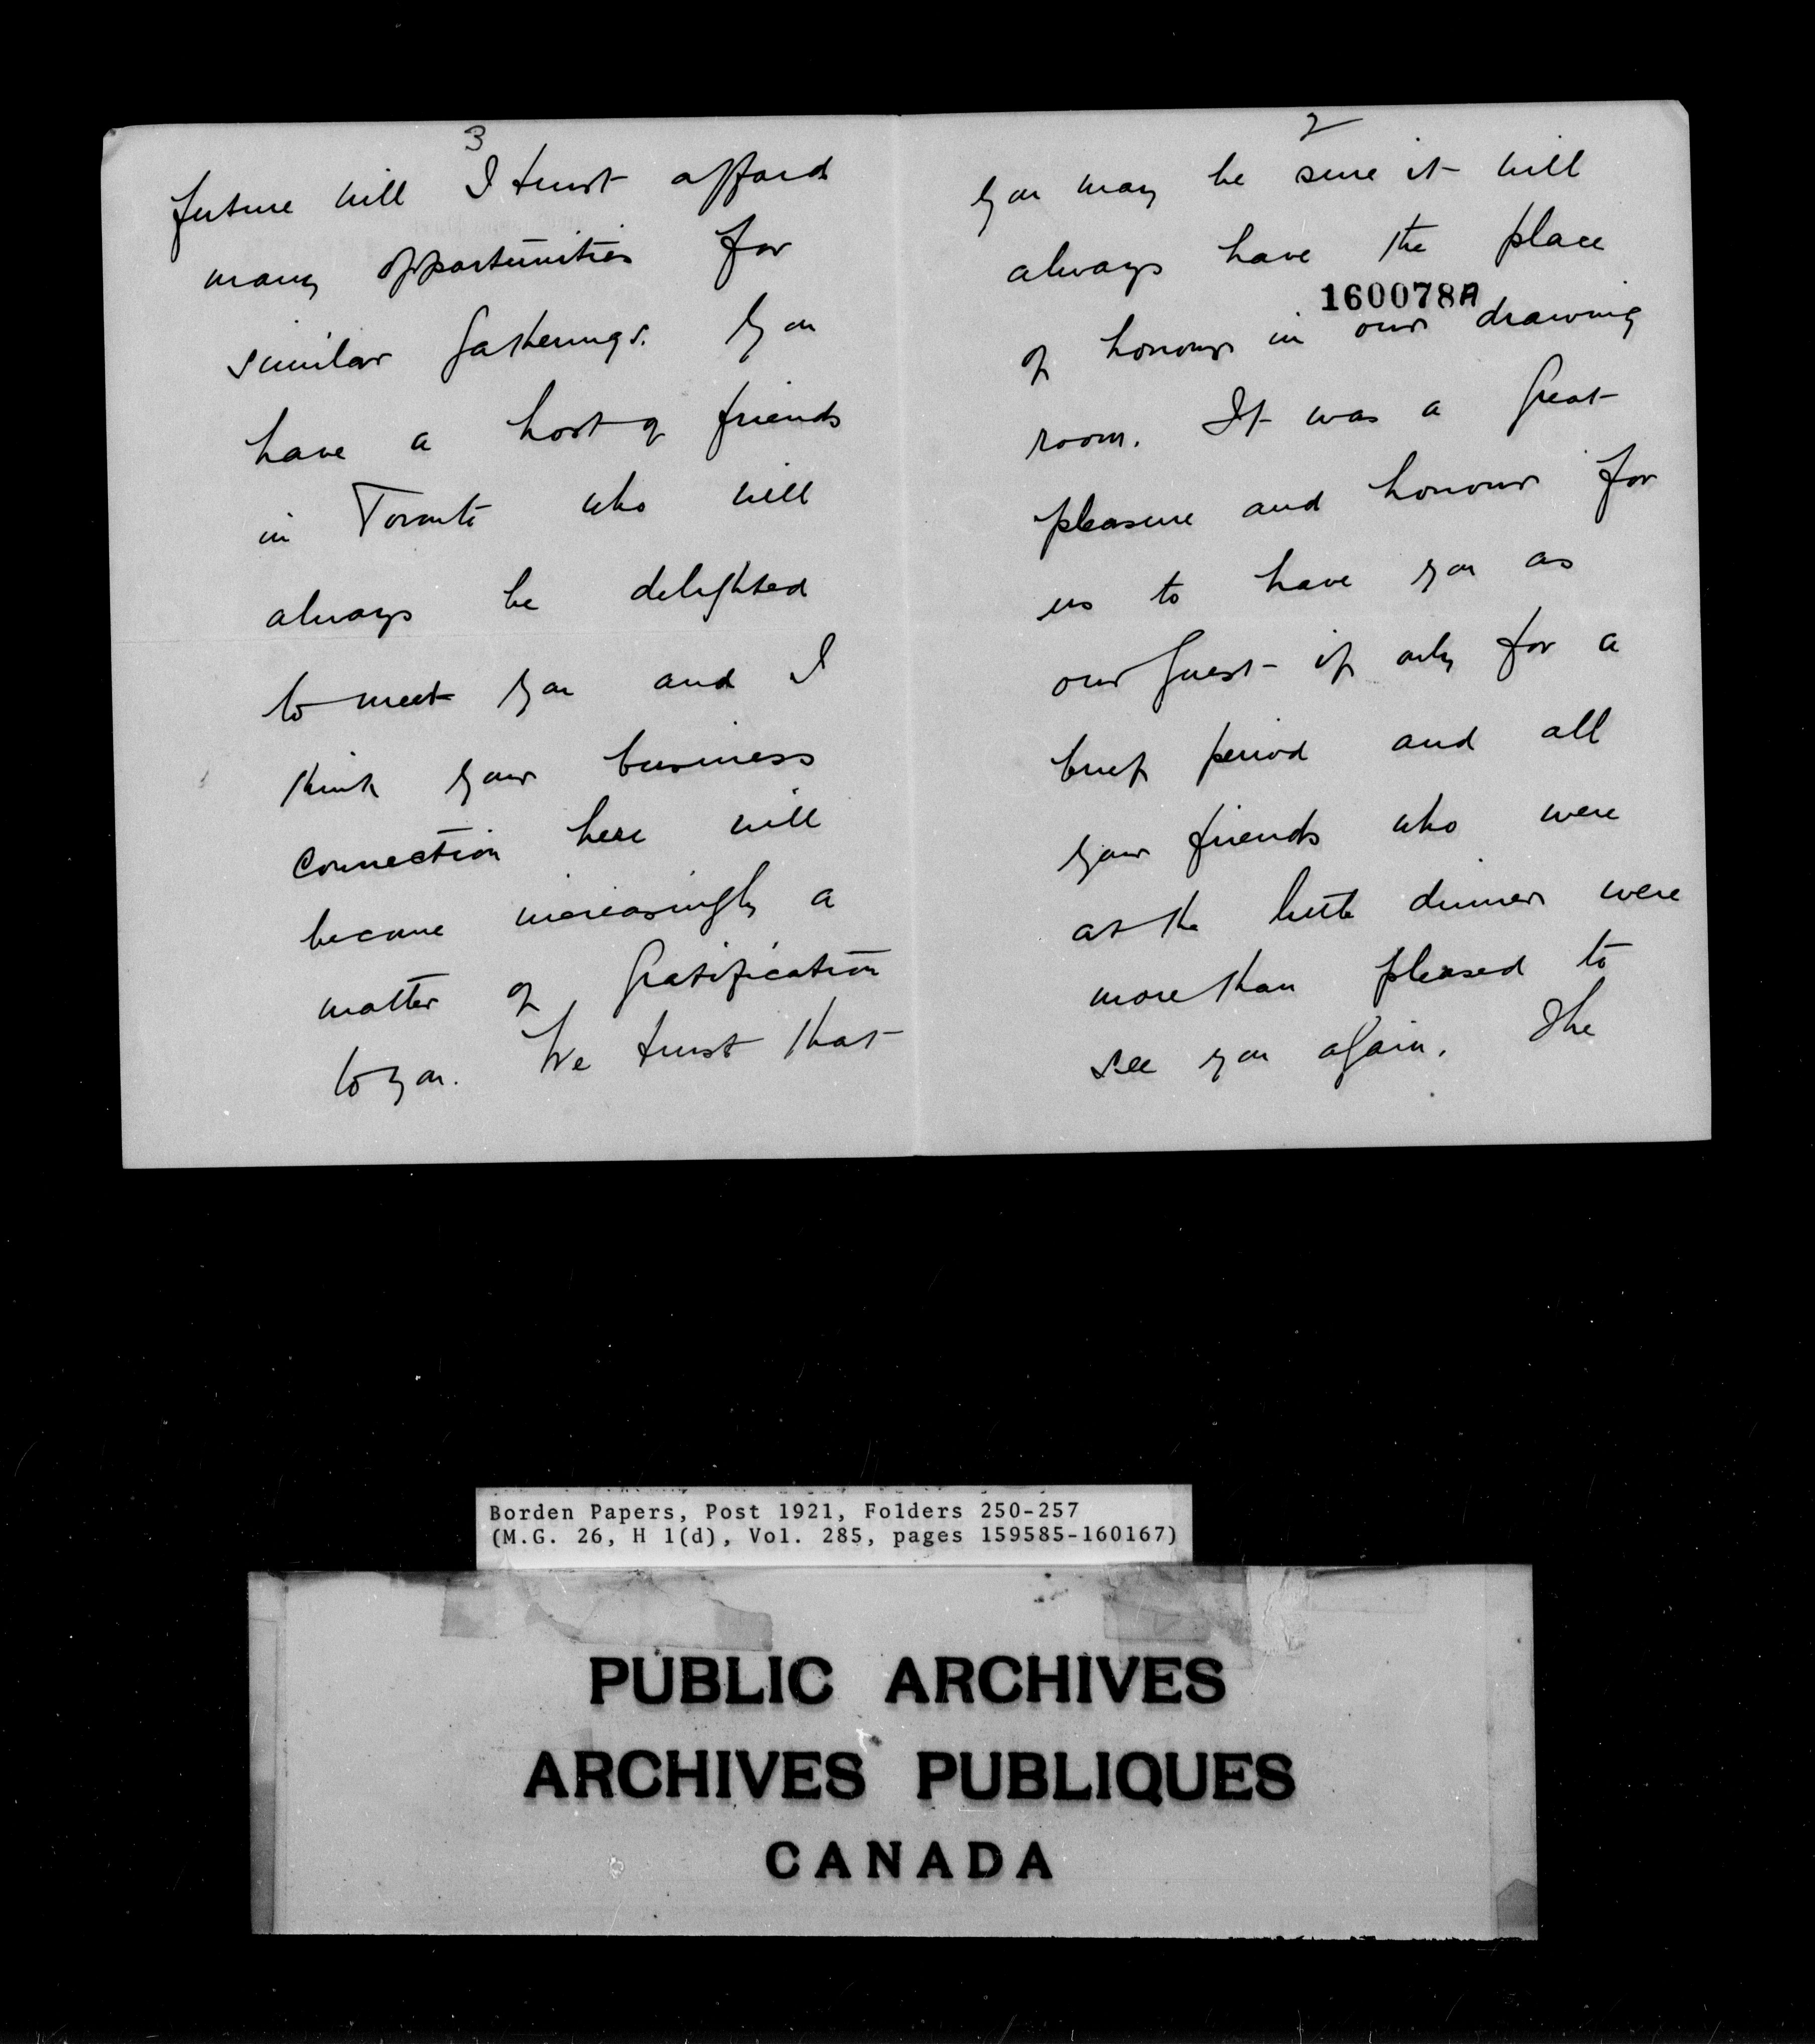 2
you may be sure it will
always have the place
160078A
of honour in our drawing
room. It was a great
pleasure and honour for
us to have you as
our guest if only for a
brief period and all
your friends who were
at the little dinner were
more than pleased to
see you again. The
3
future will I trust afford
many opportunities for
similar gatherings. You
have a host of friends
in Toronto who will
always be delighted
to meet you and I
think your business
connection here will
become increasingly a
matter of gratification
to you. We trust that
Borden Papers, Post 1921, Folders 250-257
(M.G. 26, H 1(d), Vol. 285, pages 159585-160167)
PUBLIC ARCHIVES
ARCHIVES PUBLIQUES
CANADA